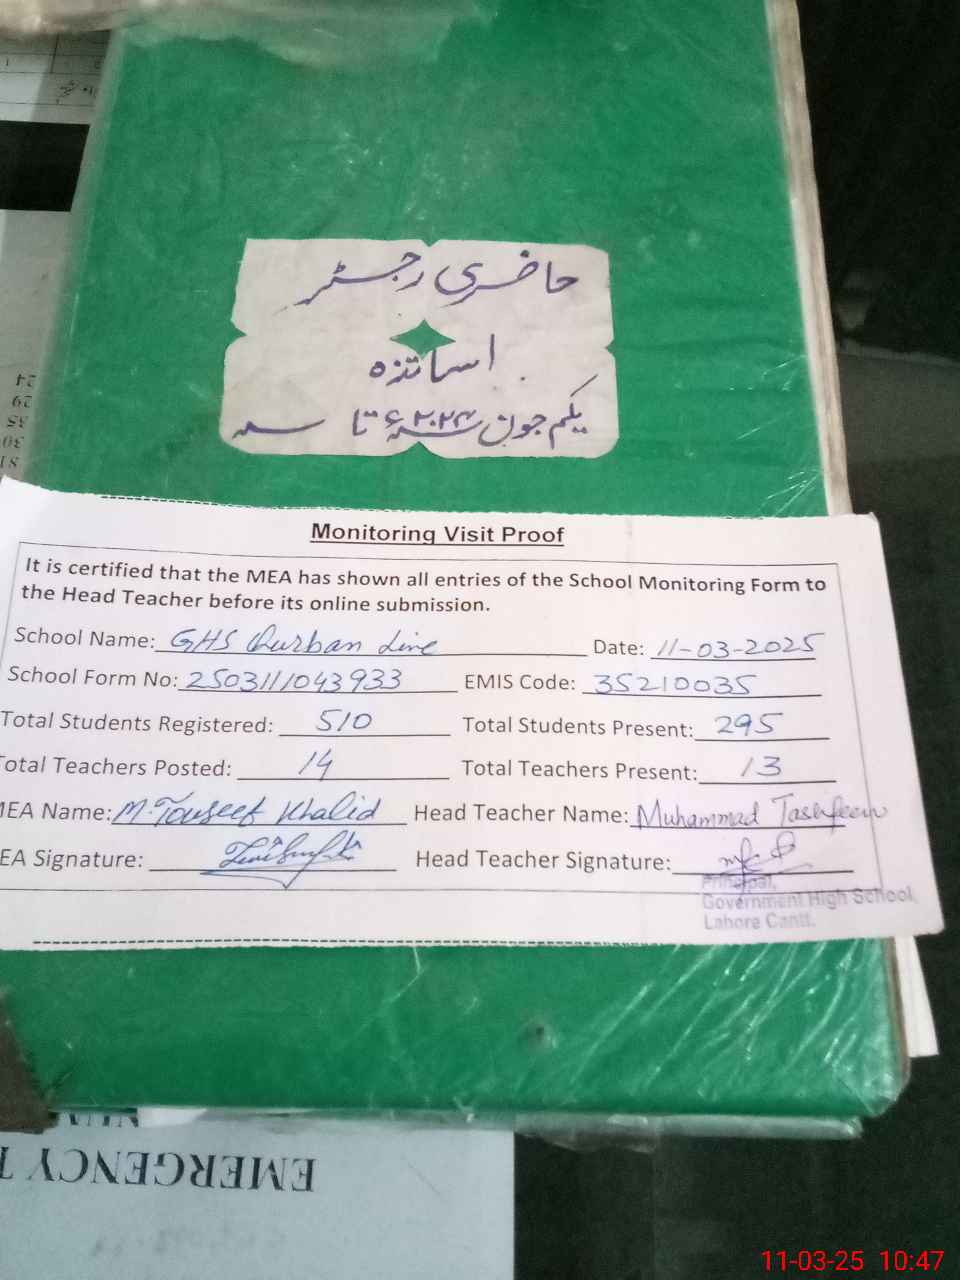 حاضری رجسٹر
اساتذہ
یکم جون ۲۰۲۴ء تا سنہ
Monitoring Visit Proof
It is certified that the MEA has shown all entries of the School Monitoring Form to
the Head Teacher before its online submission.
School Name: GHS Qurban Line Date: 11-03-2025
School Form No: 2503111043933 EMIS Code: 35210035
Total Students Registered: 510 Total Students Present: 295
Total Teachers Posted: 14 Total Teachers Present: 13
MEA Name: M. Touseef Khalid Head Teacher Name: Muhammad Tashfeen
EA Signature: Head Teacher Signature:
Principal,
Government High School,
Lahore Cantt.
EMERGENCY
11-03-25 10:47